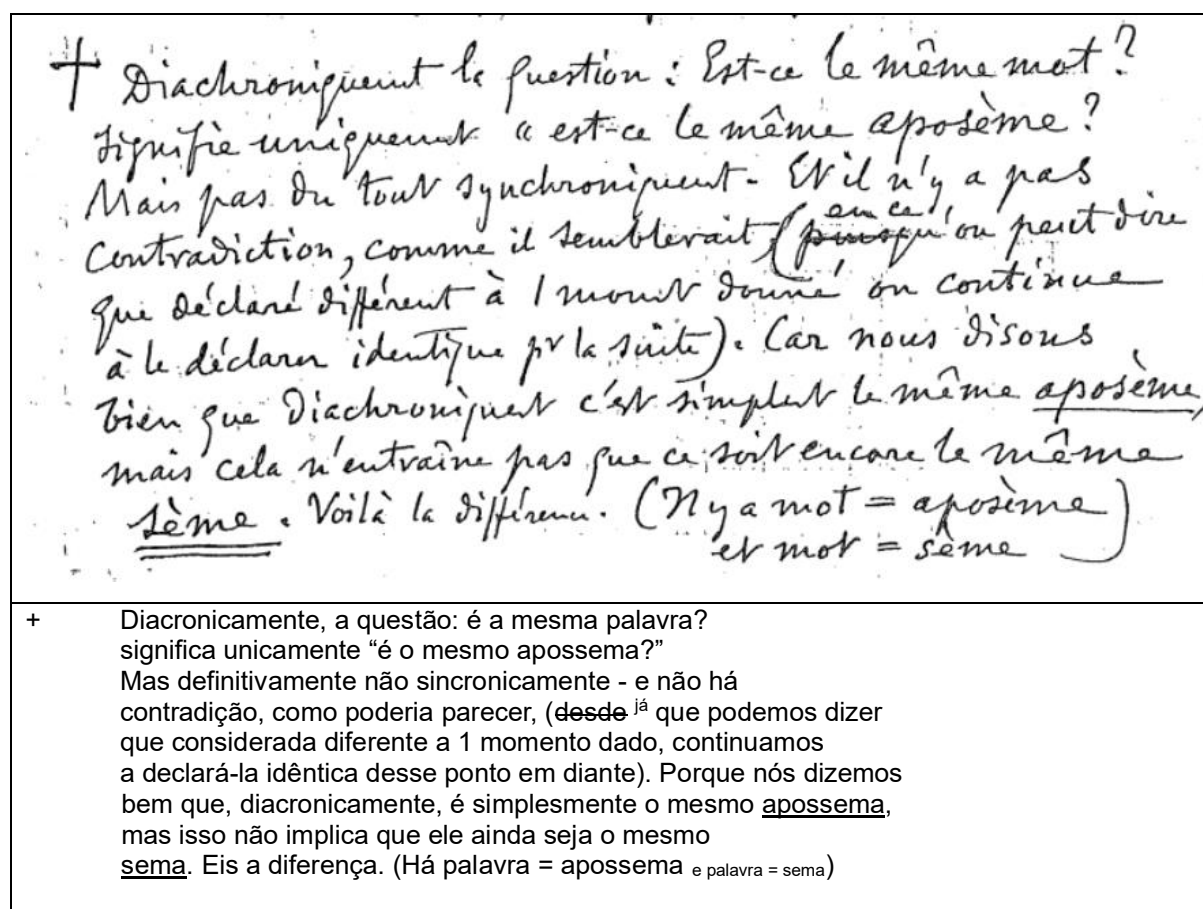 + Diachroniquemt la question : Est-ce le même mot?
signifie uniquemt « est-ce le même aposème?
Mais pas du tout synchroniquemt - Et il n'y a pas
contradiction, comme il semblerait, (puisqu' en ce qu'on peut dire
que déclaré différent à 1 momt donné on continue
à le déclarer identique pr la suite). Car nous disons
bien que Diachroniquemt c'est simplemt le même aposème,
mais cela n'entraîne pas que ce soit encore le même
sème. Voilà la différence. (Il y a mot = aposème
et mot = sème)
+ Diacronicamente, a questão: é a mesma palavra?
significa unicamente “é o mesmo apossema?”
Mas definitivamente não sincronicamente - e não há
contradição, como poderia parecer, (desde já que podemos dizer
que considerada diferente a 1 momento dado, continuamos
a declará-la idêntica desse ponto em diante). Porque nós dizemos
bem que, diacronicamente, é simplesmente o mesmo apossema,
mas isso não implica que ele ainda seja o mesmo
sema. Eis a diferença. (Há palavra = apossema e palavra = sema)